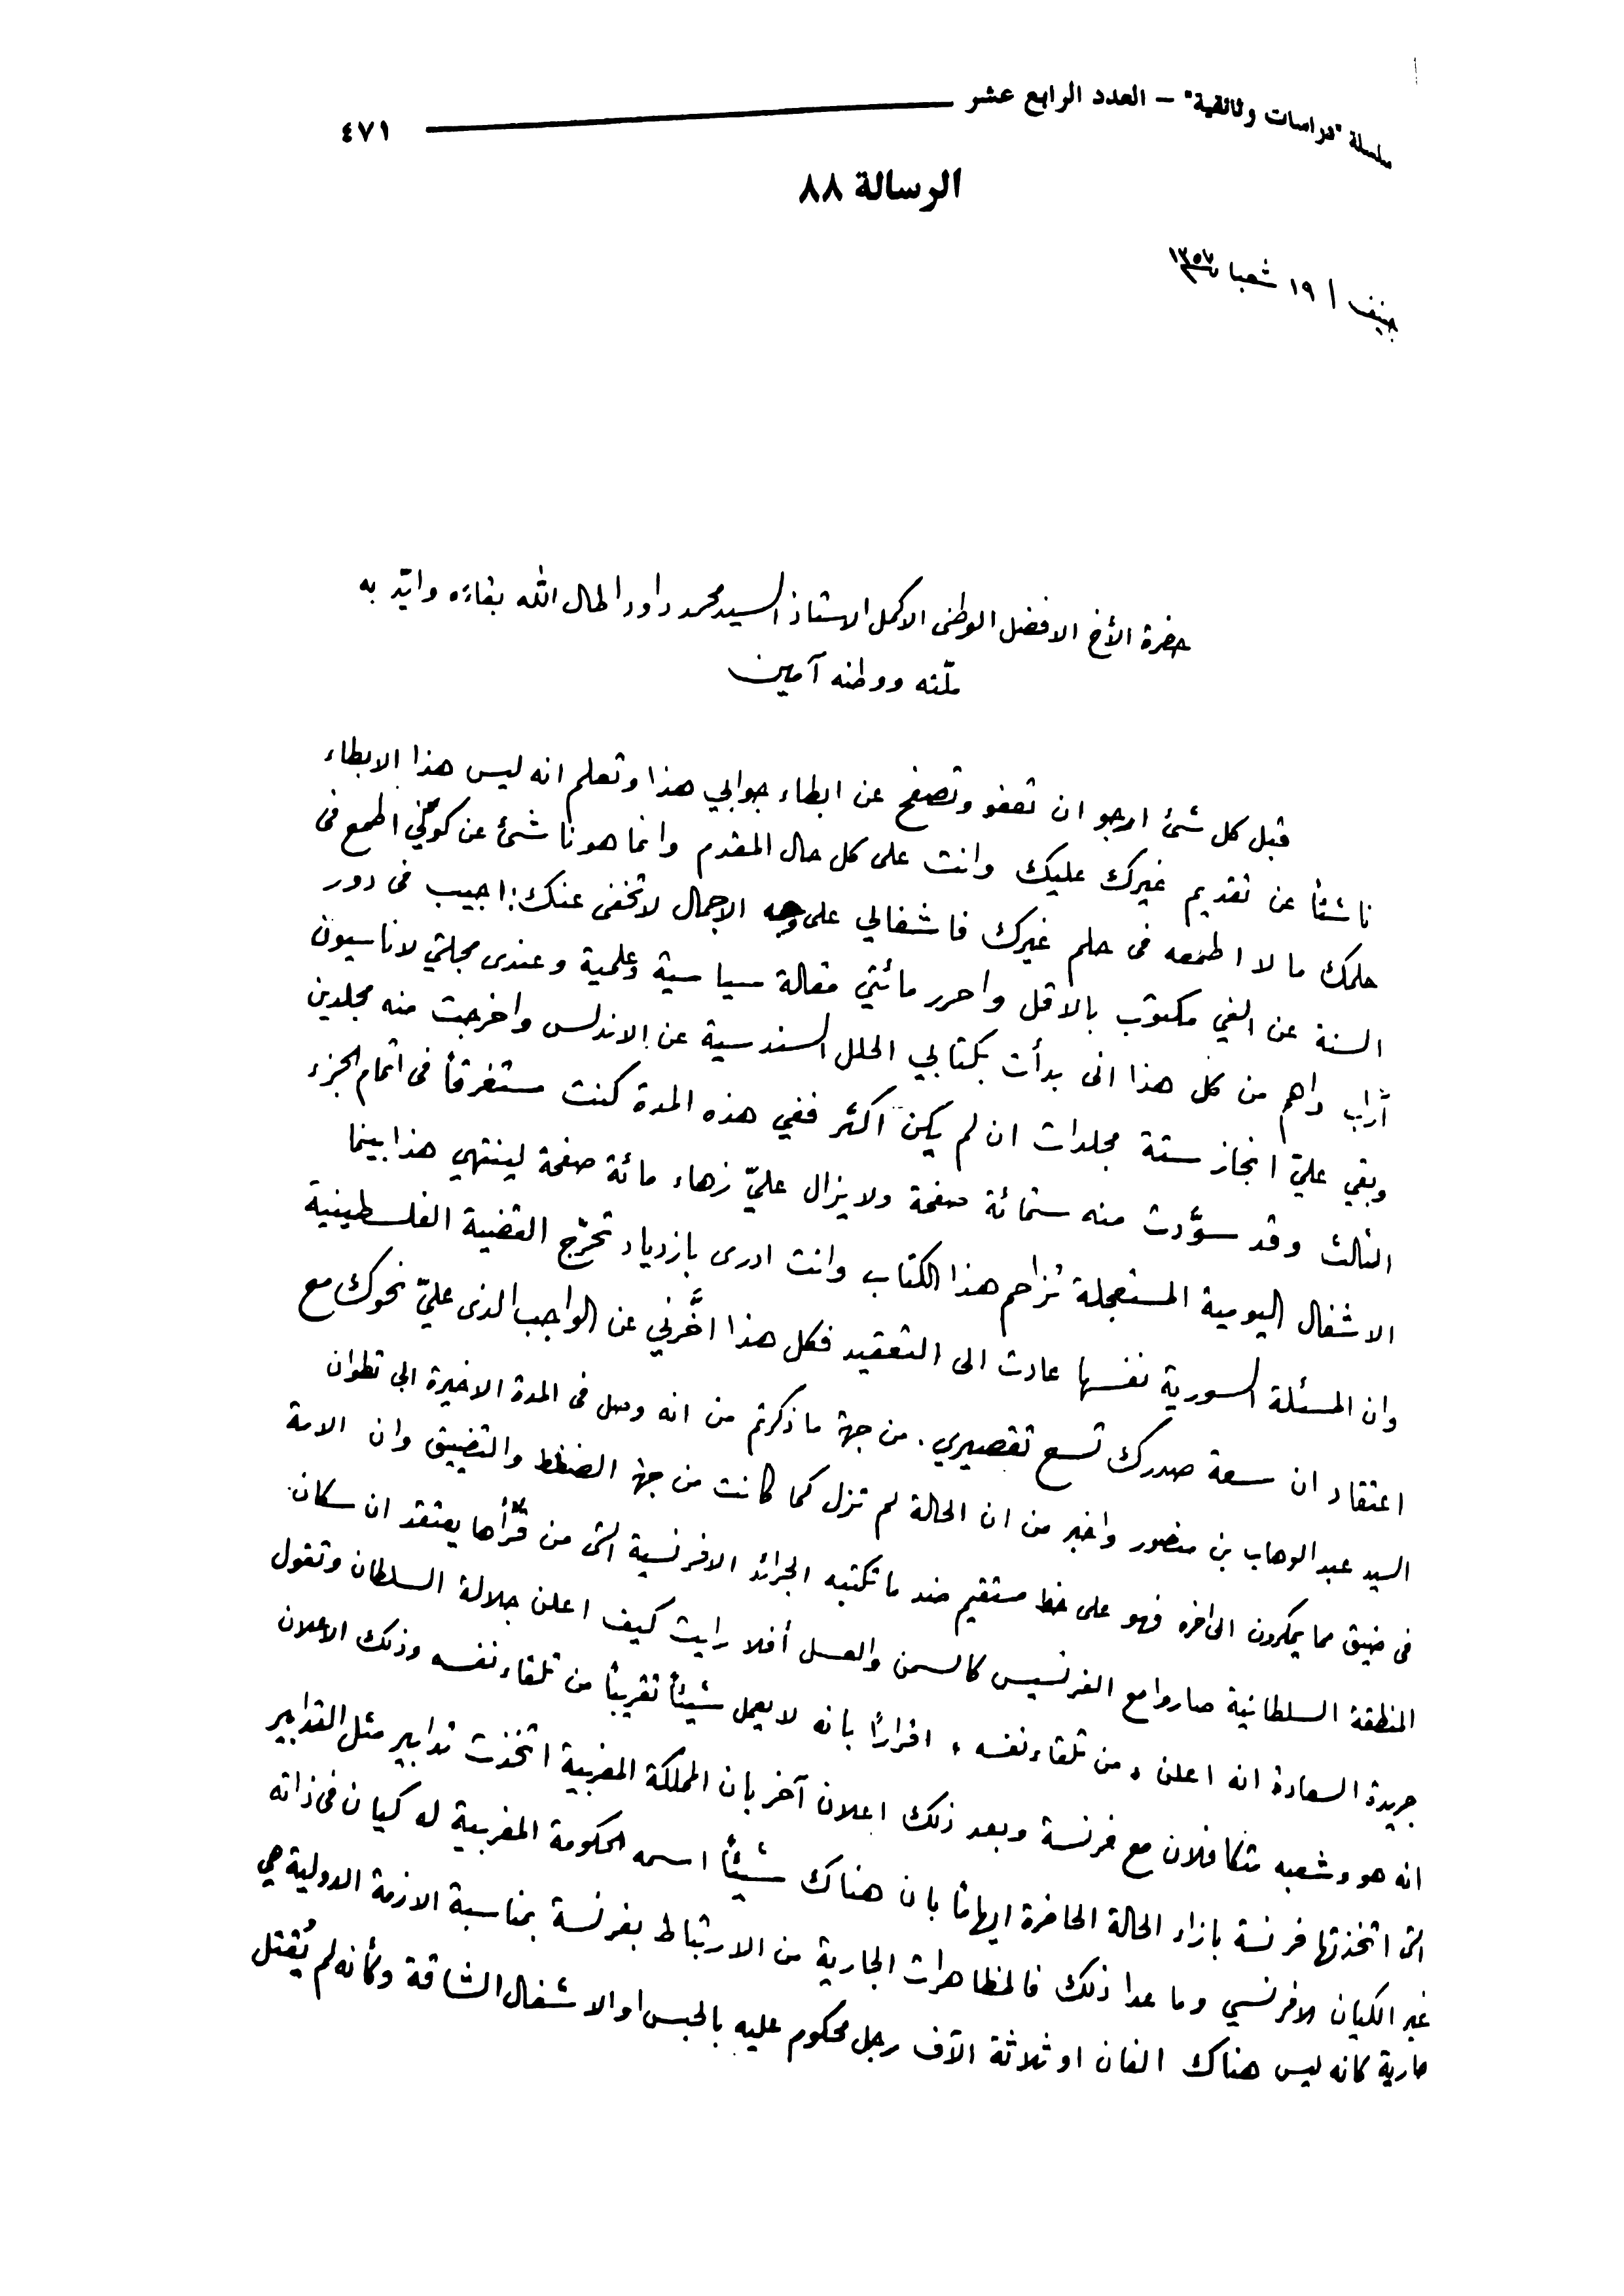 سلسلة "دراسات وثائقية" – العدد الرابع عشر ٤٧١
الرسالة ٨٨
جنيف ١٩ شعبان ١٣٥٧
حضرة الأخ الافضل الوطنى الاكمل الاستاذ السيد محمد داود اطال الله بقاءه وايّد به
ملّته ووطنه آمين
قبل كل شئ ارجو ان تعفو وتصفح عن ابطاء جوابي هذا وتعلم انه ليس هذا الابطاء
ناشئاً عن تقديم غيرك عليك وانت على كل حال المقدم وانما هو ناشئ عن كوني اطمع فى
حلمك ما لا اطمعه فى حلم غيرك فاشغالي على وجه الاجمال لا تخفى عنك: اجيب فى دور
السنة عن الفي مكتوب بالاقل واحرر مائتي مقالة سياسية وعلمية وعندى مجلتي لاناسيون
آراب واهم من كل هذا انى بدأت بكتابي الحلل السندسية عن الاندلس واخرجت منه مجلدين
وبقي عليّ انجاز ستة مجلدات ان لم يكن اكثر ففي هذه المدة كنت مستغرقاً فى اتمام الجزء
الثالث وقد سوّدت منه ستمائة صفحة ولا يزال عليّ زهاء مائة صفحة لينتهي هذا بينما
الاشغال اليومية المستعجلة تزاحم هذا الكتاب وانت ادرى بازدياد تحرّج القضية الفلسطينية
وان المسئلة السورية نفسها عادت الى التعقيد فكل هذا اخّرني عن الواجب الذى عليّ نحوك مع
اعتقاد ان سعة صدرك تسع تقصيري. من جهة ما ذكرتم من انه وصل فى المدة الاخيرة الى تطوان
السيد عبد الوهاب بن منصور واخبر من ان الحالة لم تزل كما كانت من جهة الضغط والتضييق وان الامة
فى ضيق مما يمكرون الى اخره فهو على خط مستقيم ضد ما تكتبه الجرائد الافرنسية التى من قرأها يعتقد ان سكان
المنطقة السلطانية صاروا مع الفرنسيس كالسمن والعسل أفلا رايت كيف اعلن جلالة السلطان وتقول
جريدة السعادة انه اعلن «من تلقاء نفسه» اقراراً بانه لا يعمل شيئاً تقريباً من تلقاء نفسه وذلك الاعلان
انه هو وشعبه متكافلان مع فرنسة وبعد ذلك اعلان آخر بان المملكة المغربية اتخذت تدابير مثل التدابير
التى اتخذتها فرنسة بازاء الحالة الحاضرة ايهاماً بان هناك شيئاً اسمه الحكومة المغربية له كيان فى ذاته
غير الكيان الافرنسي وما عدا ذلك فالمظاهرات الجارية من الارتباط بفرنسة بمناسبة الازمة الدولية هي
جارية كانه ليس هناك الفان او ثلاثة آلاف رجل محكوم عليه بالحبس او الاشغال الشاقة وكأنه لم يُقتل